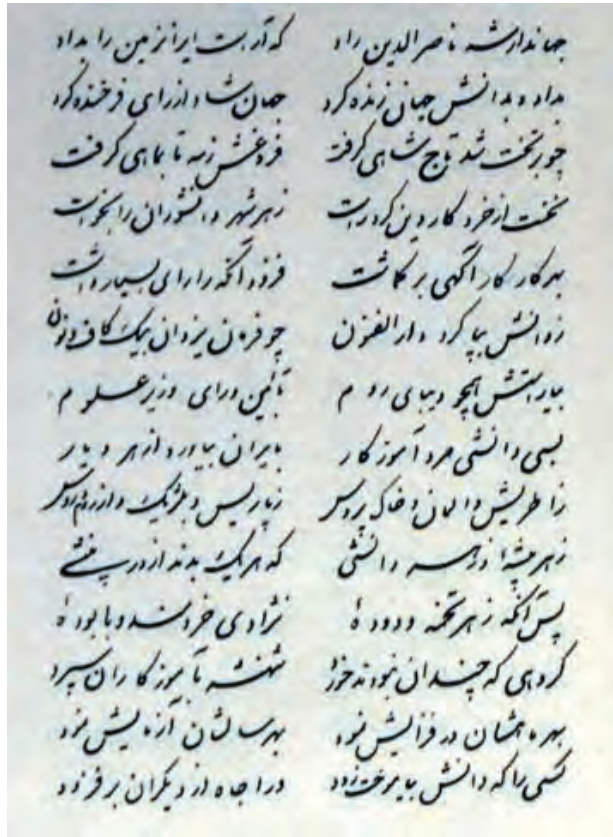 جهاندار شه ناصرالدین راد که آراست ایرانزمین را بداد
بداد و بدانش جهان زنده کرد جهان شاد از رای فرخنده کرد
چو بر تخت شد تاج شاهی گرفت فروغش ز مه تا بماهی گرفت
نخست از خرد کار دین کرد راست ز هر شهر دانشوران را بخواست
بهر کار کارآگهی برگماشت فزود آنکه را رای بسیار داشت
ز دانش بپا کرد دارالفنون چو فرمان یزدان بیک کاف و نون
بیاراستش همچو دیبای روم بآئین و رای وزیر علوم
بسی دانشی مرد آموزگار بایران بیاورد از هر دیار
ز اطریش و المان و خاک پروس ز پاریس و بلژیک و از روم و روس
ز هر پیشه‌ٔ وز هر دانشی که هر یک بدند از در
پس آنگه ز هر تخمه و دودهٔ نژادی خردمند و با بودهٔ
گروهی که چندان نبودند خورد شهنشه بآموزگاران سپرد
بهر ماهشان در فزایش نمود بهر سالشان آزمایش نمود
کسی را که دانش بیاموخت زود ورا جاه از دیگران برفزود